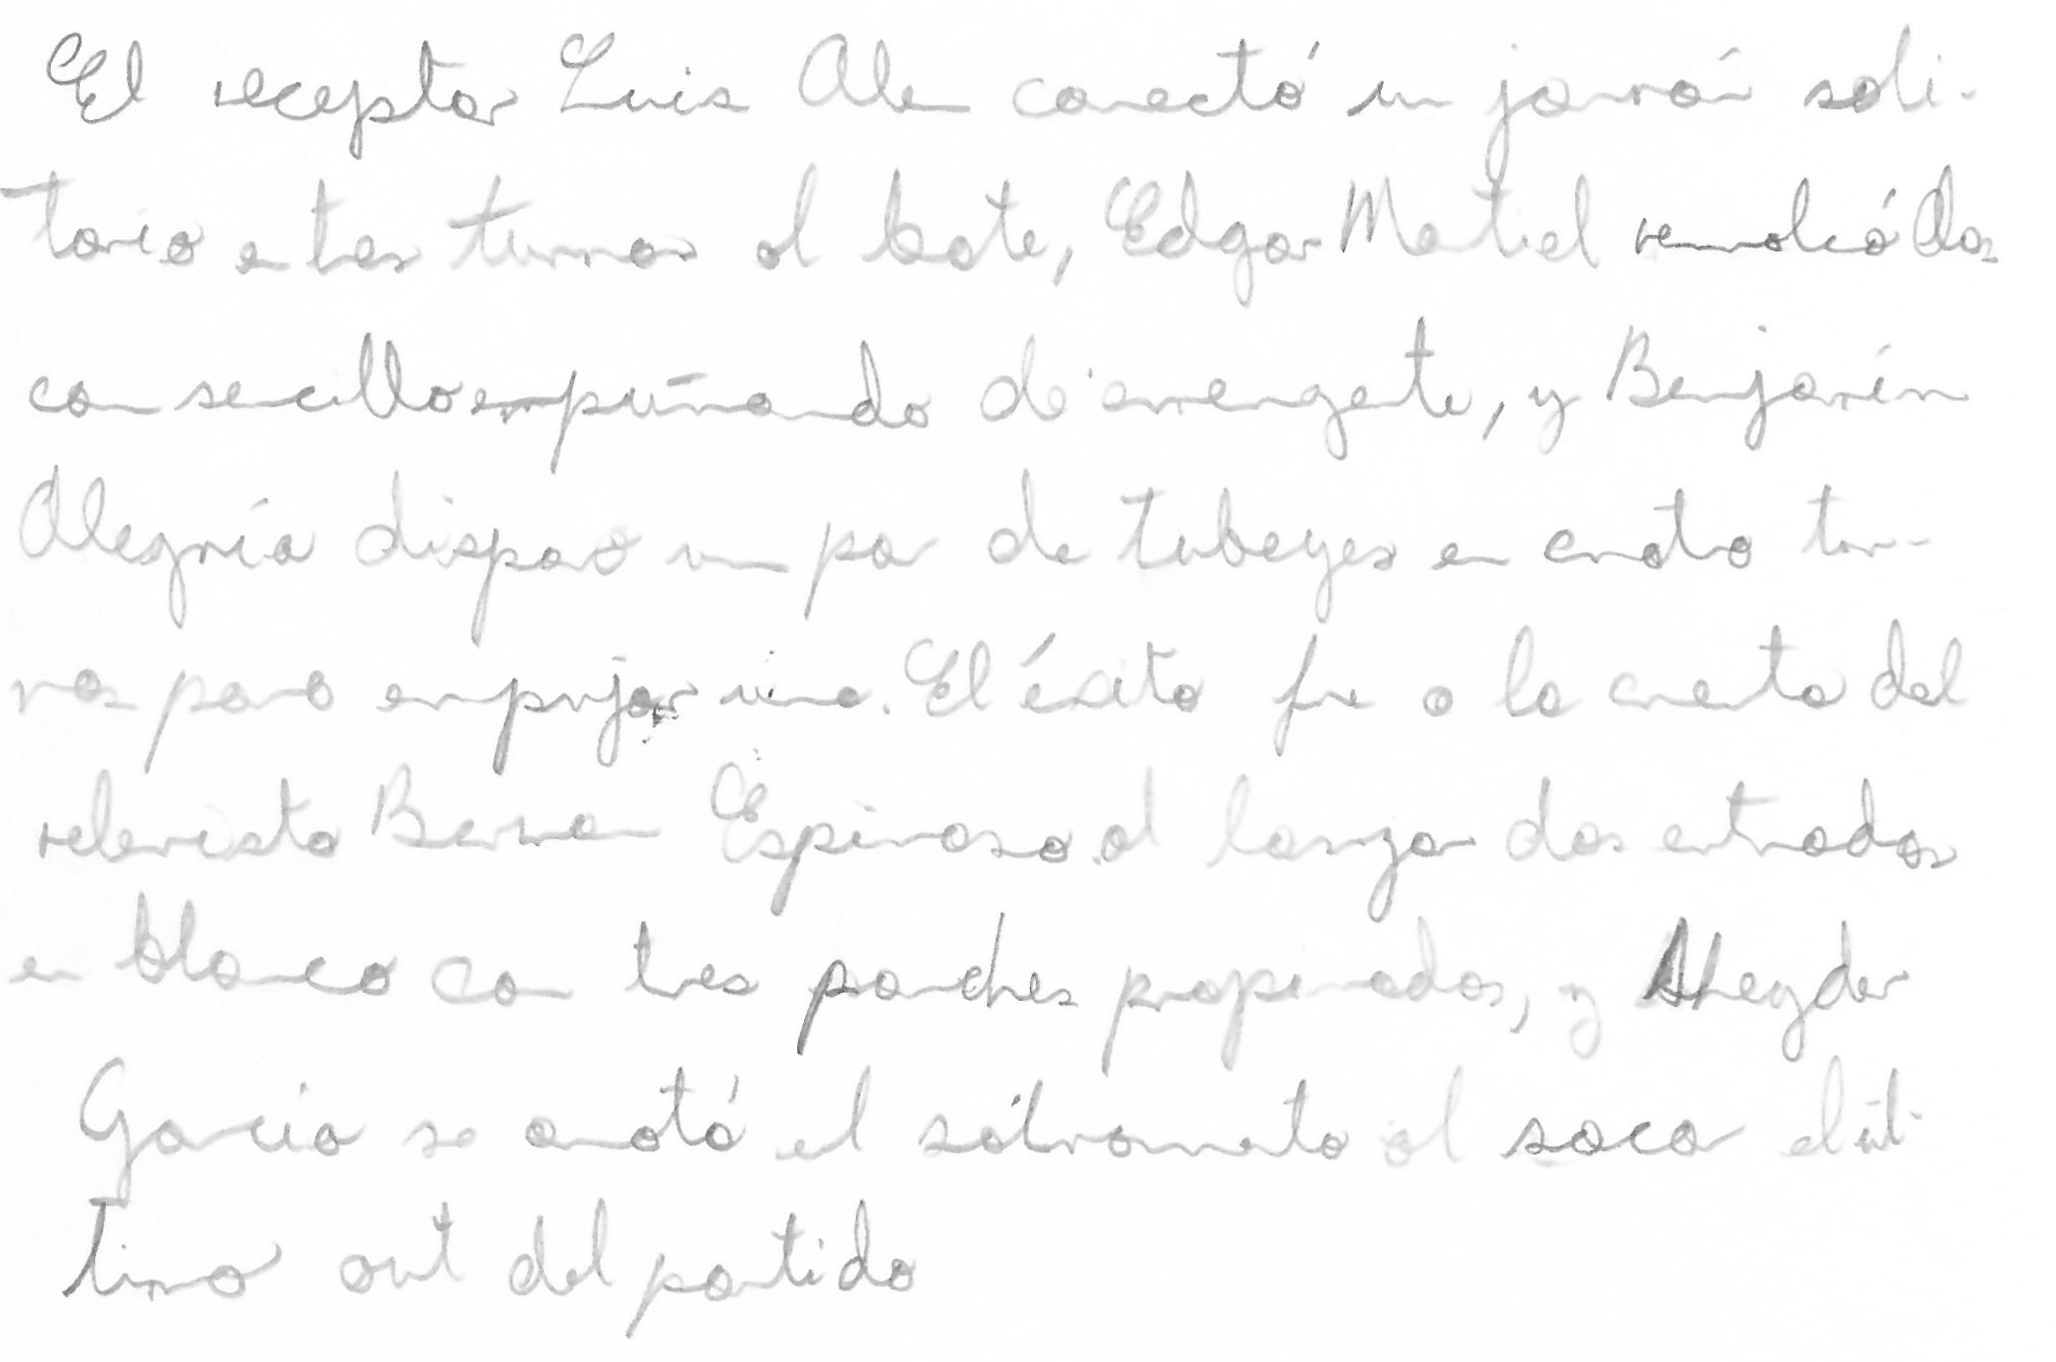 El receptor Luis Alen conectó un jonrón soli-
tario en tres turnos al bate, Edgar Matiel remolcó dos
con sencillo empuñando de emergente, y Benjamín
Alegría disparó un par de tubeyes en cuatro tur-
nos para empujar una. El éxito fue a la cuenta del
relevista Bernan Espinoso al lanzar dos entradas
en blanco con tres ponches propinados, y Sheyder
García se anotó el salvamento al sacar el úl-
timo out del partido